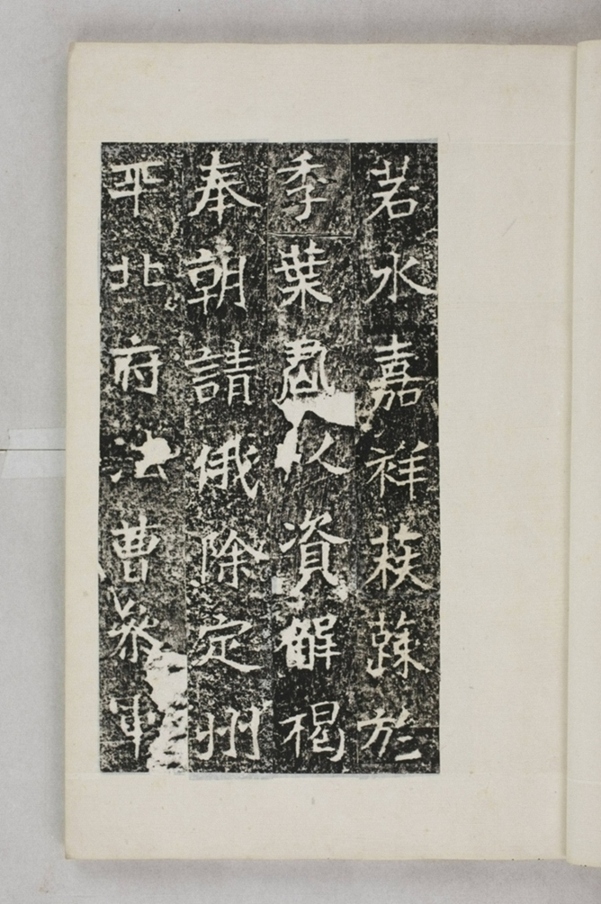 若水嘉祥荴蔬於
季葉君以資解褐
奉朝請俄除定州
平北府法曹參軍